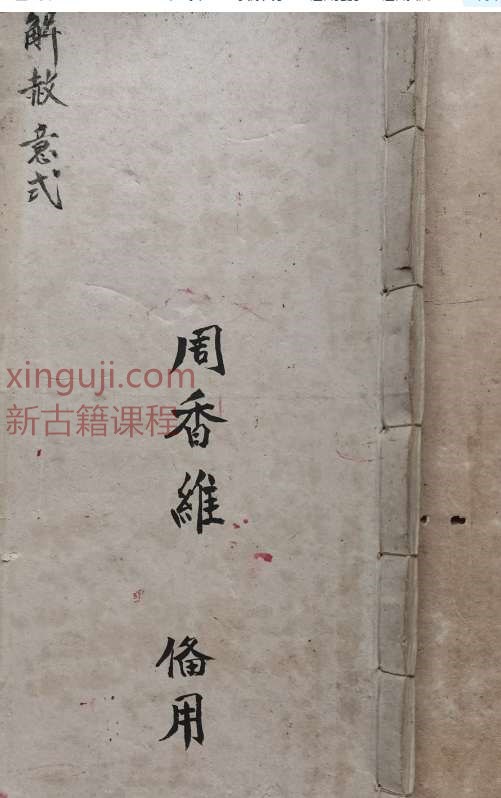 解赦意式
周香維 俻用
xinguji.com
新古籍课程